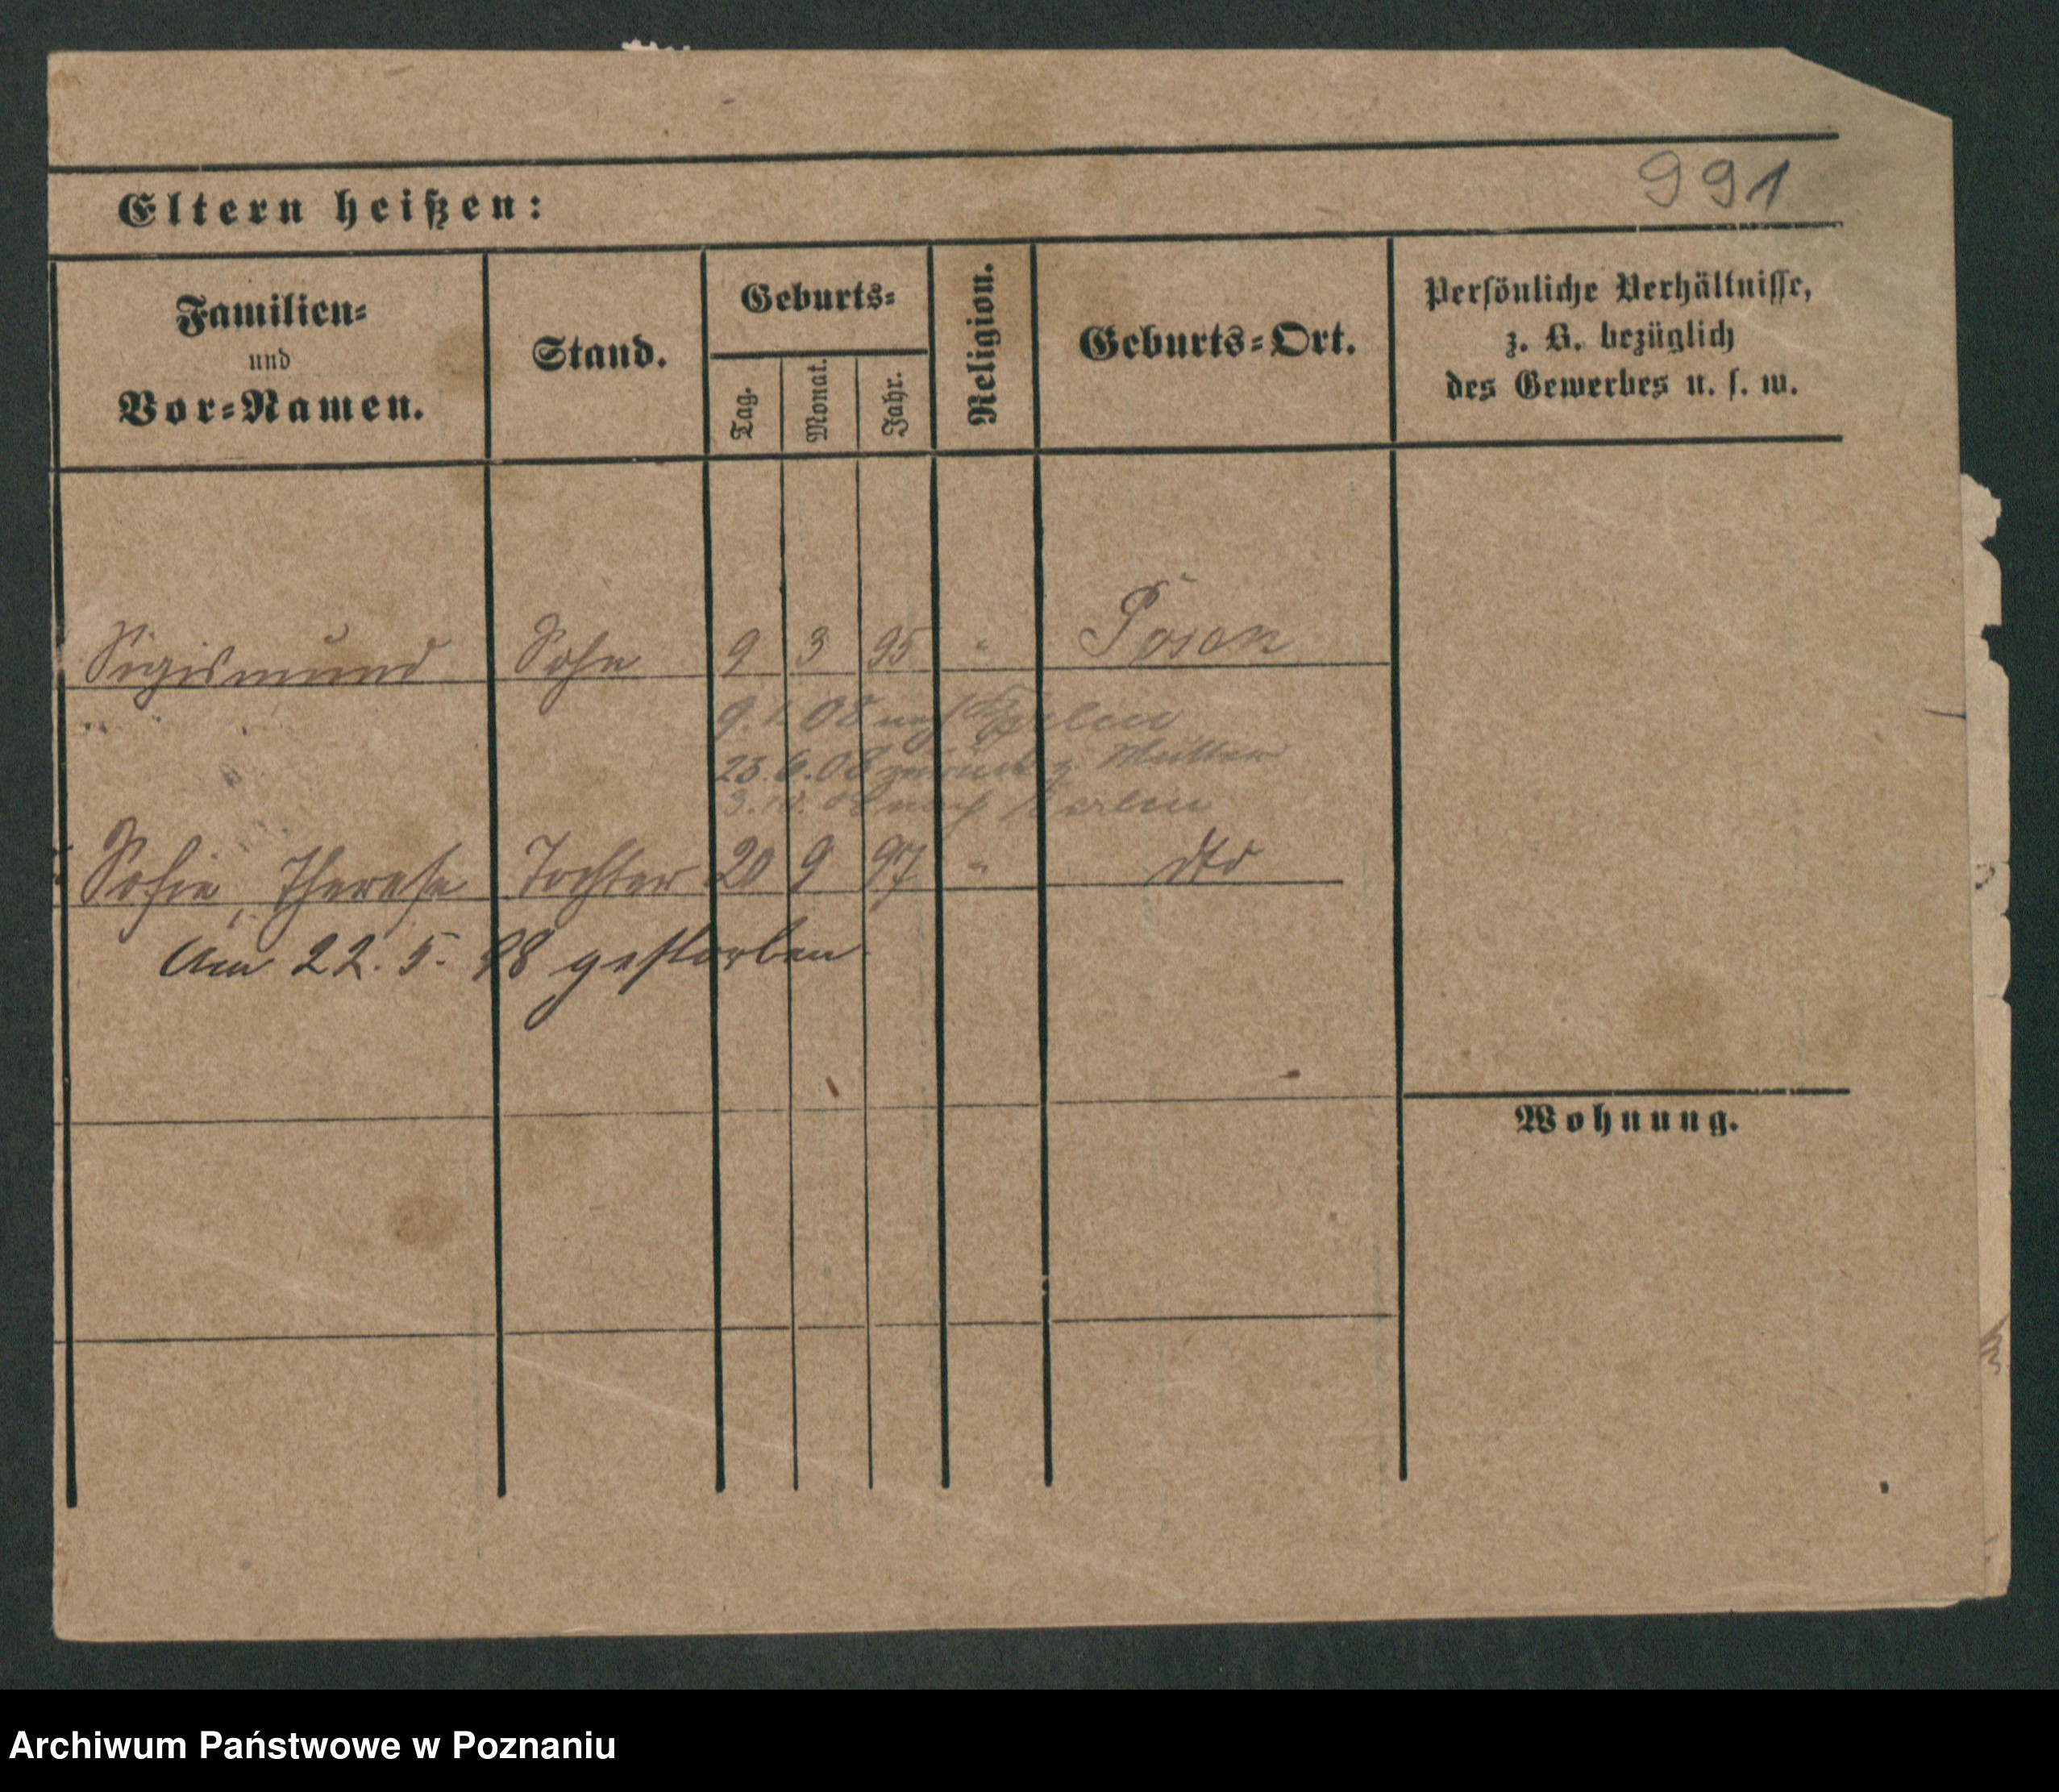 991
Eltern heißen:
Familien-
und
Vor-Namen.
Stand.
Geburts-
Tag.
Monat.
Jahr.
Religion.
Geburts-Ort.
Persönliche Verhältnisse,
z. B. bezüglich
des Gewerbes u. s. w.
Sigismund Sohn 9 3 95 " Posen
9. 1. 08 nach Berlin
23. 6. 08 zurück z. Mutter
3. 10. 08 nach Berlin
Sofie, Therese Tochter 20 9 97 " dto
Am 22. 5. 98 gestorben
Wohnung.
Archiwum Państwowe w Poznaniu